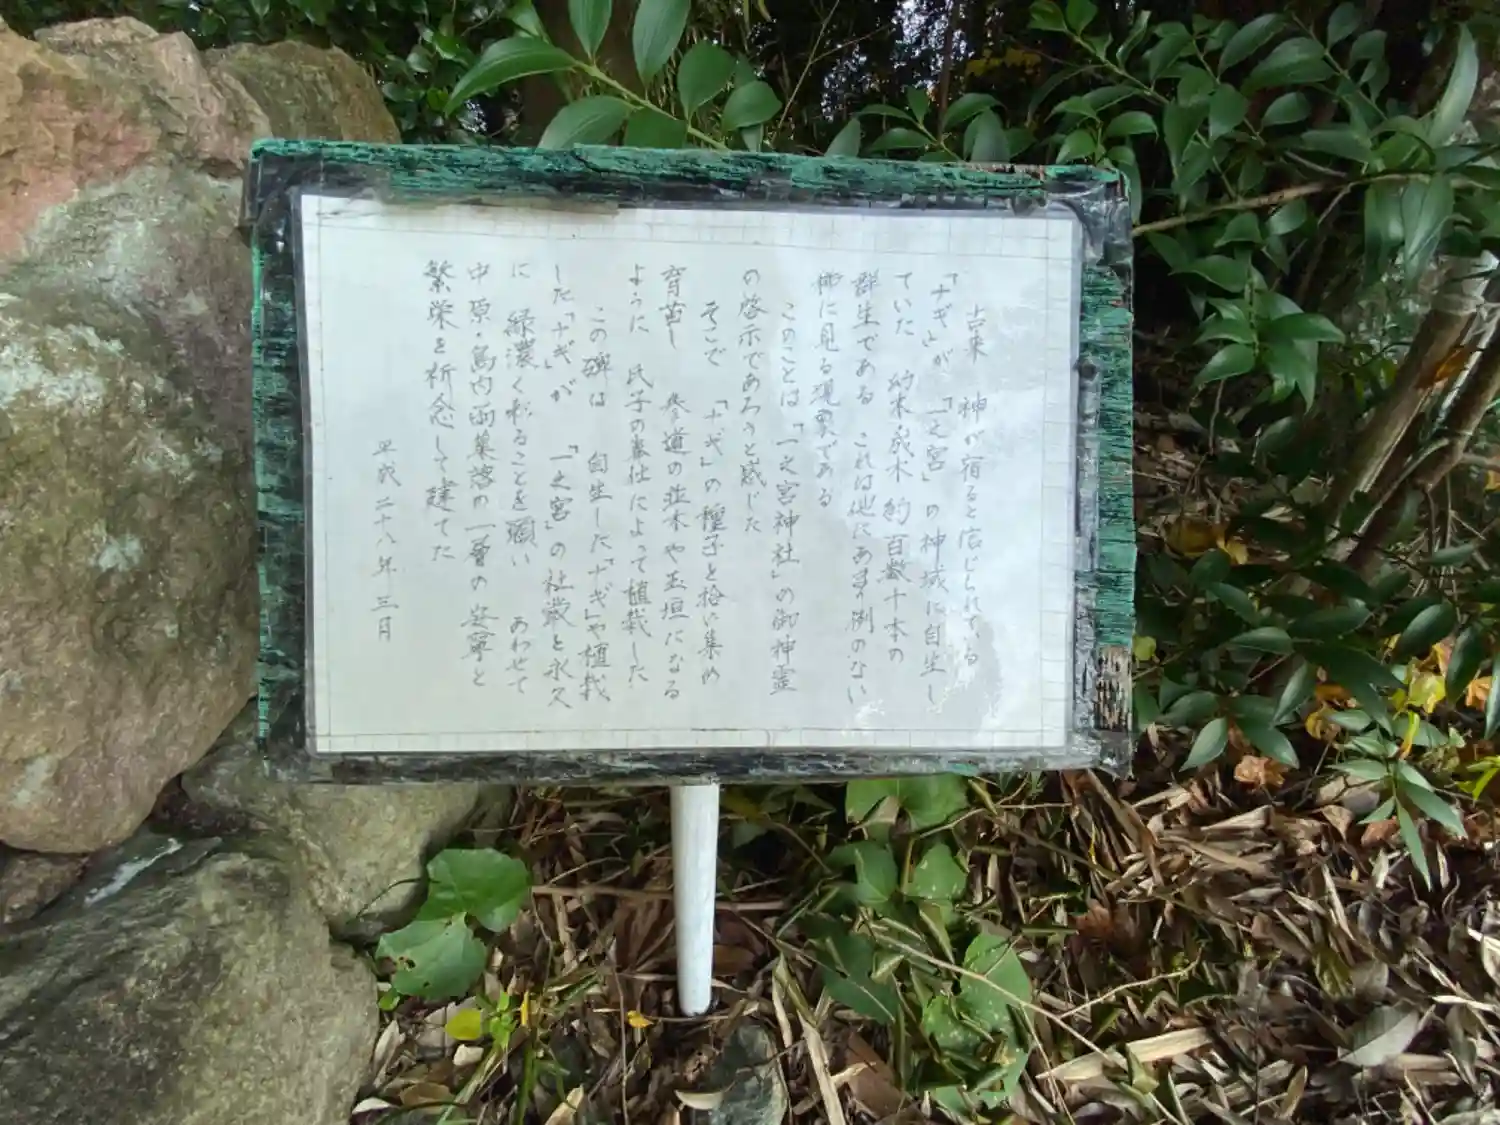 古来　神が宿ると信じられている
「ナギ」が「一之宮」の神域に自生し
ていた　幼木成木　約百数十本の
群生である　これは他にあまり例のない
稀に見る現象である
このことは「一之宮神社」の御神霊
の啓示であろうと感じた
そこで　「ナギ」の種子を拾い集め
育苗し　参道の並木や玉垣になる
ように　氏子の奉仕によって植栽した
この碑は　自生した「ナギ」や植栽
した「ナギ」が　「一之宮」の社叢と永久
に　緑濃く彩ることを願い　あわせて
中原・島内両集落の一層の安寧と
繁栄を祈念して建てた
平成二十八年三月